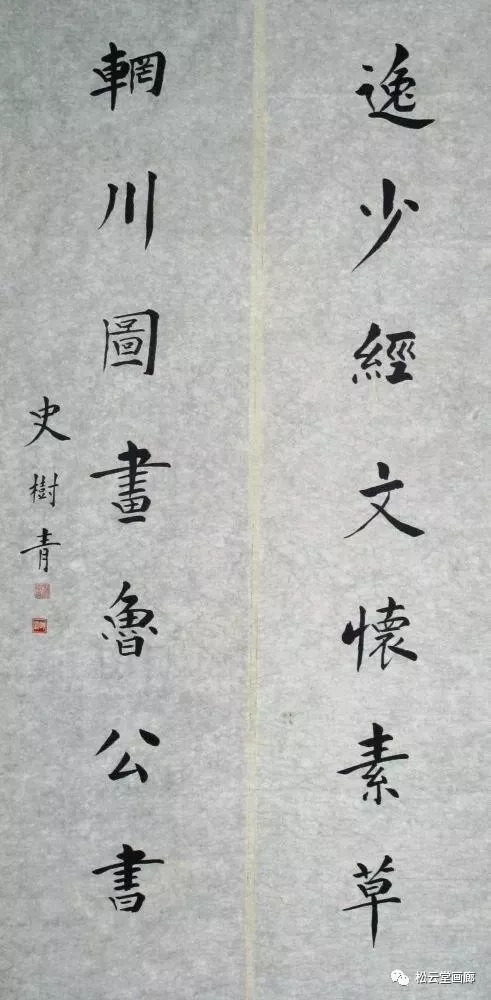 逸少經文懷素草
輞川圖畫魯公書
史樹青
松云堂画廊